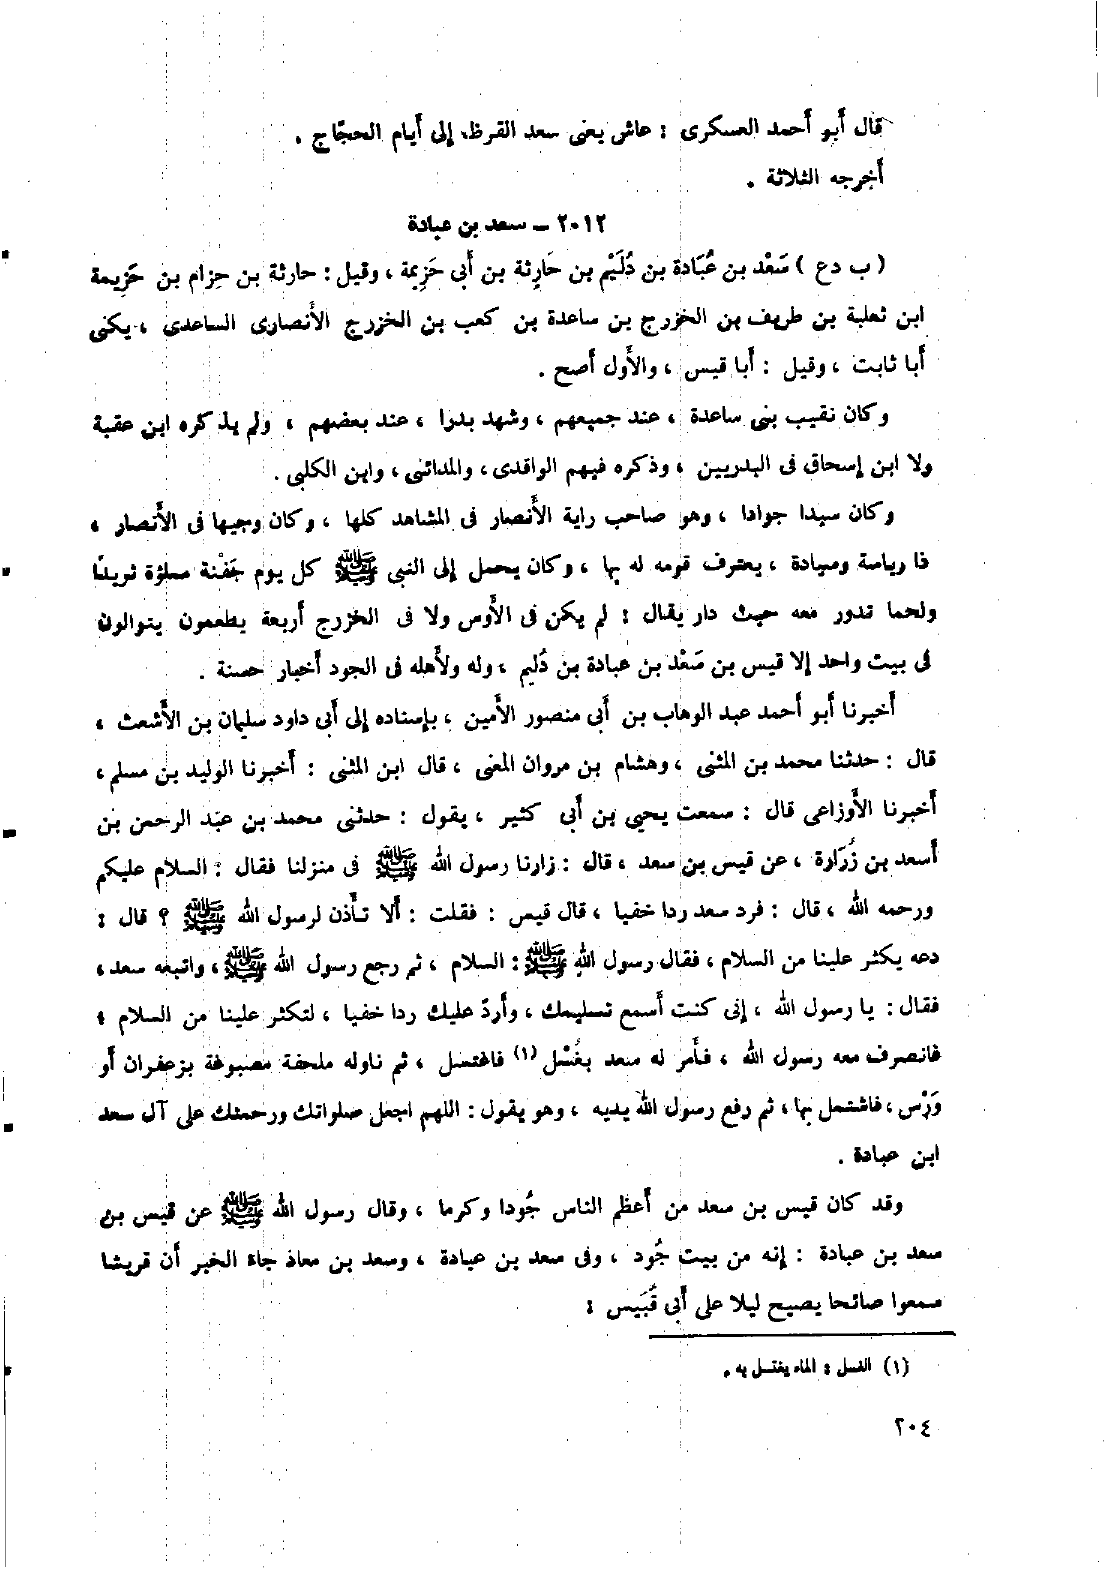 قال أبو أحمد العسكرى : عاش يعنى سعد القرظ، إلى أيام الحجّاج .
أخرجه الثلاثة .
٢٠١٢ - سعد بن عبادة
( ب د ع ) سَعْد بن عُبَادة بن دُلَيْم بن حَارِثة بن أبى حَزِيمة ، وقيل : حارثة بن حِزام بن حَزِيمة
ابن ثعلبة بن طريف بن الخزرج بن ساعدة بن كعب بن الخزرج الأنصارى الساعدى ، يكنى
أبا ثابت ، وقيل : أبا قيس ، والأول أصح .
وكان نقيب بنى ساعدة ، عند جميعهم ، وشهد بدرا ، عند بعضهم ، ولم يذكره ابن عقبة
ولا ابن إسحاق فى البدريين ، وذكره فيهم الواقدى ، والمدائنى ، وابن الكلبى .
وكان سيدا جوادا ، وهو صاحب راية الأنصار فى المشاهد كلها ، وكان وجيها فى الأنصار ،
ذا رياسة وسيادة ، يعترف قومه له بها ، وكان يحمل إلى النبى ﷺ كل يوم جَفْنة مملؤة ثريدًا
ولحما تدور معه حيث دار يقال : لم يكن فى الأوس ولا فى الخزرج أربعة يطعمون يتوالون
فى بيت واحد إلا قيس بن سَعْد بن عبادة بن دُليم ، وله ولأهله فى الجود أخبار حسنة .
أخبرنا أبو أحمد عبد الوهاب بن أبى منصور الأمين ، بإسناده إلى أبى داود سليمان بن الأشعث ،
قال : حدثنا محمد بن المثنى ، وهشام بن مروان المعنى ، قال ابن المثنى : أخبرنا الوليد بن مسلم ،
أخبرنا الأوزاعى قال : سمعت يحيى بن أبى كثير ، يقول : حدثنى محمد بن عبد الرحمن بن
أسعد بن زُرَارة ، عن قيس بن سعد ، قال : زارنا رسول الله ﷺ فى منزلنا فقال : السلام عليكم
ورحمه الله ، قال : فرد سعد ردا خفيا ، قال قيس : فقلت : ألا تأذن لرسول الله ﷺ ؟ قال :
دعه يكثر علينا من السلام ، فقال رسول الله ﷺ : السلام ، ثم رجع رسول الله ﷺ ، واتبعه سعد ،
فقال : يا رسول الله ، إنى كنت أسمع تسليمك ، وأردّ عليك ردا خفيا ، لتكثر علينا من السلام ،
فانصرف معه رسول الله ، فأمر له سعد بغُسْل (١) فاغتسل ، ثم ناوله ملحفة مصبوغة بزعفران أو
وَرْس ، فاشتمل بها ، ثم رفع رسول الله يديه ، وهو يقول : اللهم اجعل صلواتك ورحمتك على آل سعد
ابن عبادة .
وقد كان قيس بن سعد من أعظم الناس جُودا وكرما ، وقال رسول الله ﷺ عن قيس بن
سعد بن عبادة : إنه من بيت جُود ، وفى سعد بن عبادة ، وسعد بن معاذ جاءَ الخبر أن قريشا
سمعوا صائحا يصيح ليلا على أبى قُبَيس :
(١) الغسل : الماء يغتسل به .
٢٠٤